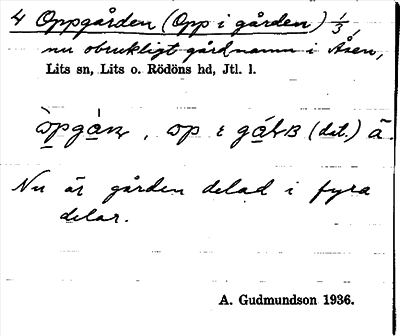 4 Oppgården (Opp i gården) 1/3,
nu obrukligt gårdnamn i Åsen,
Lits sn, Lits o. Rödöns hd, Jtl. l.
(dat.) ā.
Nu är gården delad i fyra
delar.
A. Gudmundson 1936.